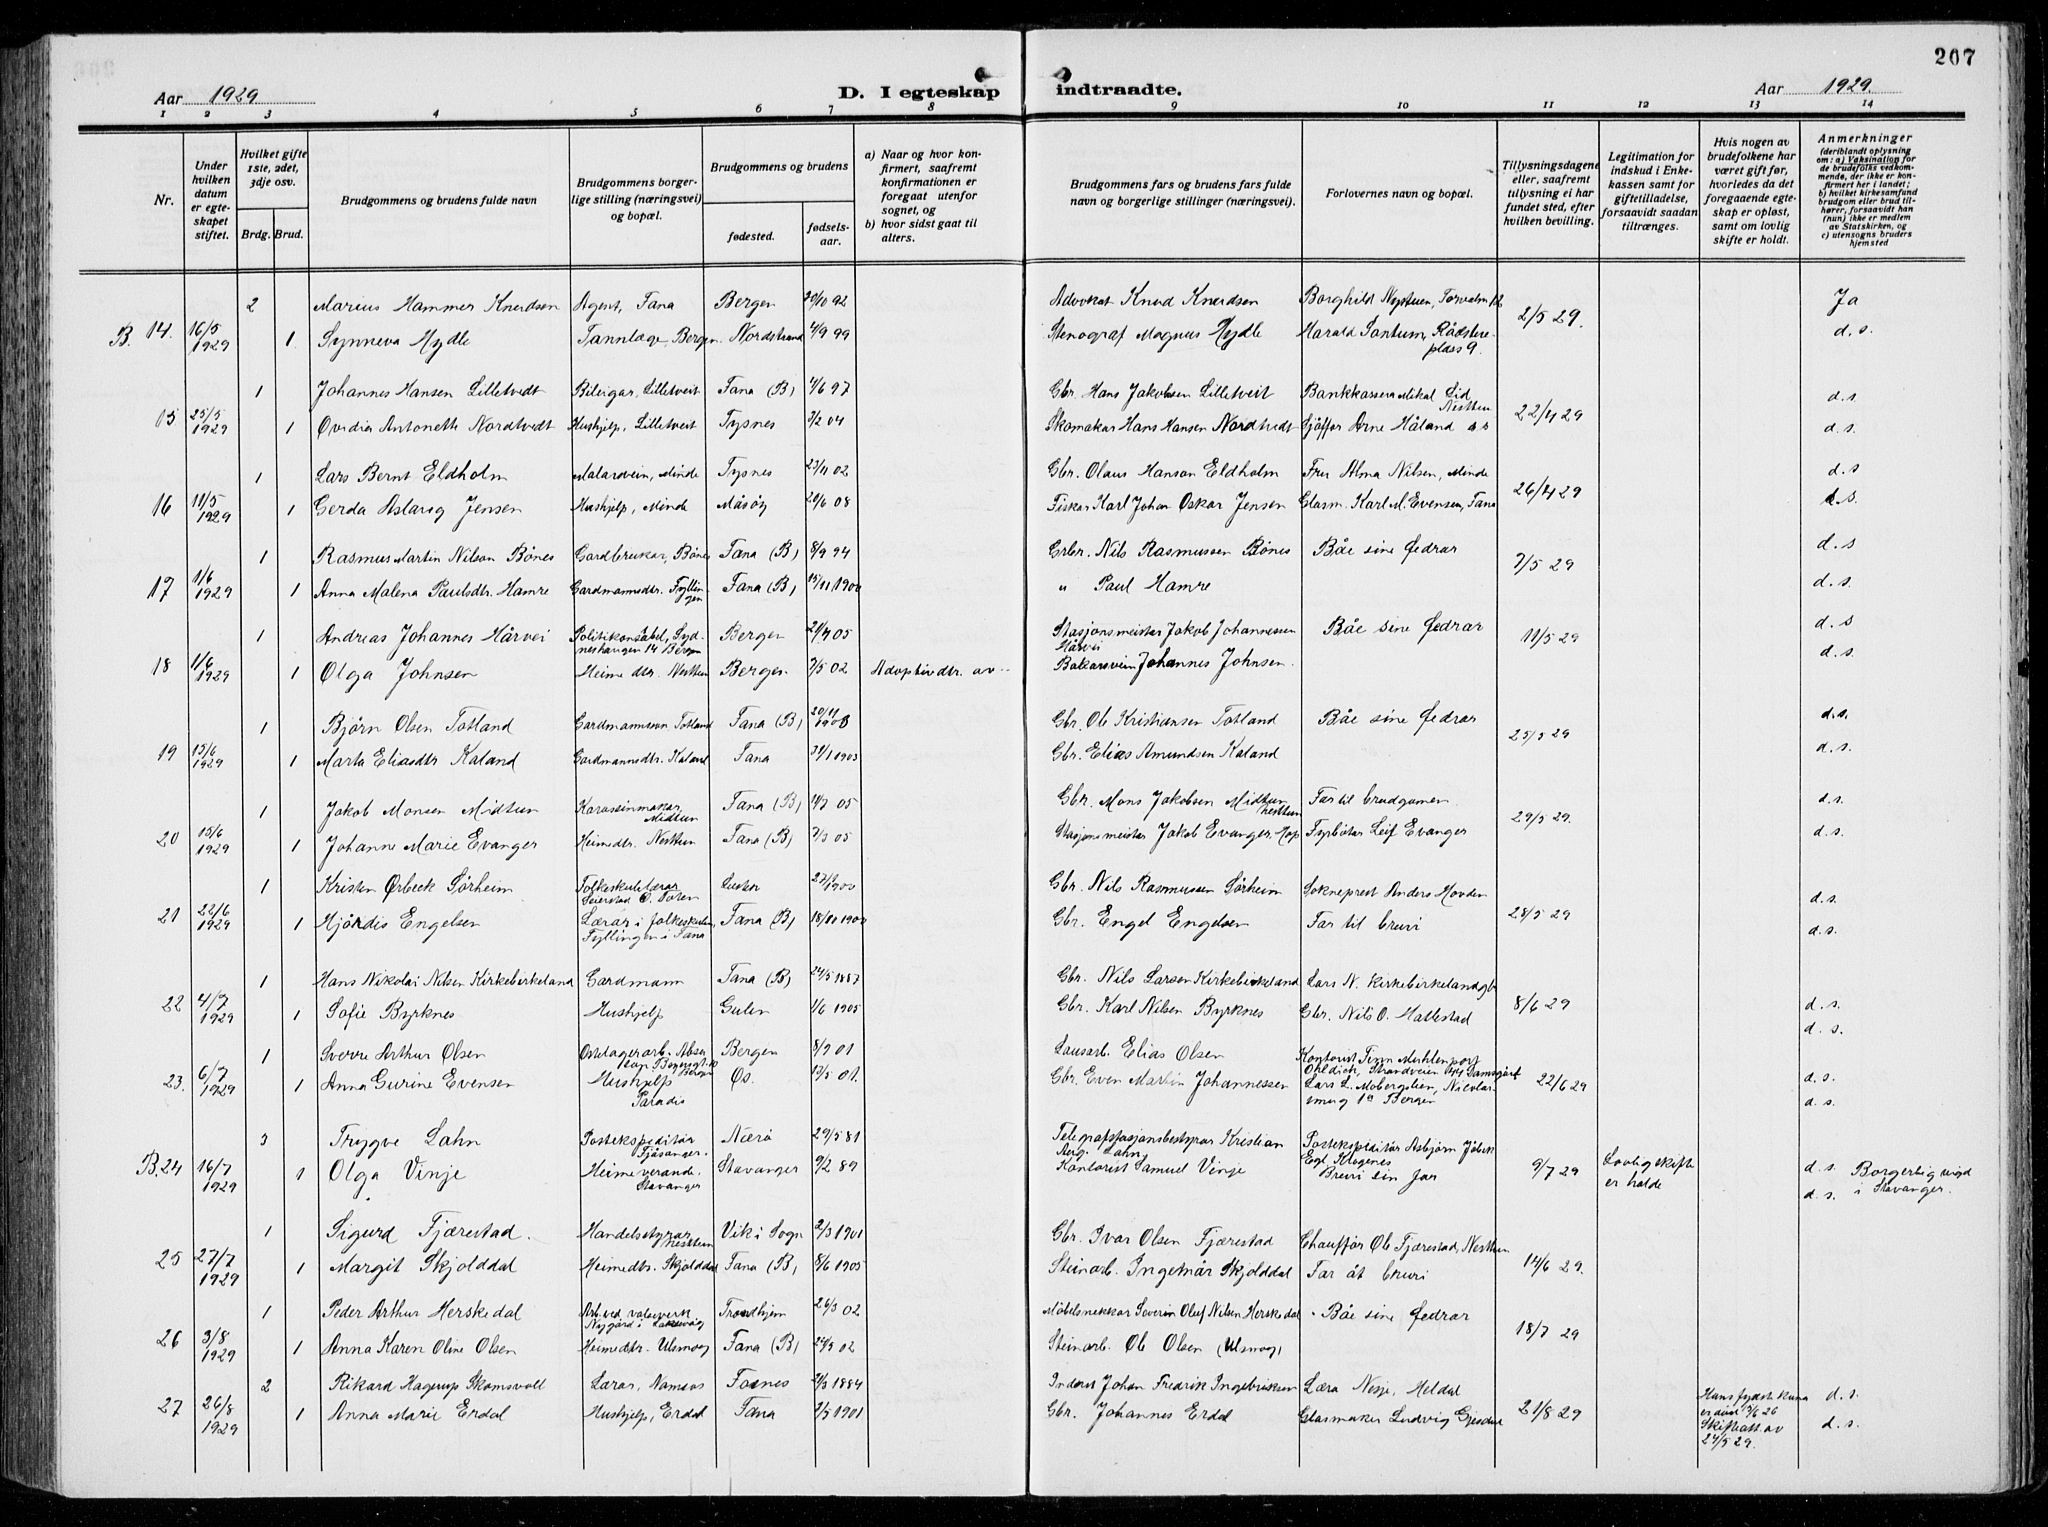 207
Aar 1929
D. I egteskap indtraadte.
Aar 1929.
1 2 3 4 5 6 7 8 9 10 11 12 13 14
Nr.
Under hvilken datum er egteskapet stiftet.
Hvilket gifte 1ste, 2det, 3dje osv.
Brdg. Brud.
Brudgommens og brudens fulde navn
Brudgommens borgerlige stilling (næringsvei) og bopæl.
Brudgommens og brudens
fødested.
fødselsaar.
a) Naar og hvor konfirmert, saafremt konfirmationen er foregaat utenfor sognet, og
b) hvor sidst gaat til alters.
Brudgommens fars og brudens fars fulde navn og borgerlige stillinger (næringsvei).
Forlovernes navn og bopæl.
Tillysningsdagene eller, saafremt tillysning ei har fundet sted, efter hvilken bevilling.
Legitimation for indskud i Enkekassen samt for giftetilladelse, forsaavidt saadan tiltrænges.
Hvis nogen av brudefolkene har været gift før, hvorledes da det foregaaende egteskap er opløst, samt om lovlig skifte er holdt.
Anmerkninger
(deriblandt oplysning om: a) Vaksination for de brudefolks vedkommende, der ikke er konfirmert her i landet; b) hvilket kirkesamfund brudgom eller brud tilhører, forsaavidt han (hun) ikke er medlem av Statskirken, og c) utensogns bruders hjemsted
2 Marius Hammer Knudsen Agent, Fana Bergen 20/10 92 Advokat Knud Knudsen Borghild Nystuen, Torvalm 12 Ja
B. 14. 16/5 1929 1 Synneva Hydle Tannlæge, Bergen Nordstrand 4/9 99 Stenograf Magnus Hydle Harald Pontum, Rådstueplass 9. 2/5 29. d. s.
1 Johannes Hansen Lilletvedt Bileigar, Lilletveit Fana (B) 4/6 97 Gbr. Hans Jakobsen Lilletveit Bankkasserar Mikal Lid Nesttun d. s.
15 25/5 1929 1 Øvidia Antonette Nordtvedt Hushjelp, Lilletveit Tysnes 3/2 04 Skomakar Hans Hansen Nordtvedt Sjåffør Arne Håland 22/4 29 d. s.
1 Lars Bernt Eldholm Malarsvein, Minde Tysnes 23/11 02 Gbr. Olaus Hanson Eldholm Fru Alma Nilsen, Minde d. s
16 11/5 1929 1 Gerda Aslaug Jensen Hushjelp, Minde Måsøy 20/6 08 Fiskar Karl Johan Oskar Jensen Glasm. Karl M. Evensen, Fana 26/4 29 d. s.
1 Rasmus Martin Nilson Bønes Gardbrukar, Bønes Fana (B) 8/9 94 Grbr. Nils Rasmussen Bønes Båe sine fedrar d. s
17 1/6 1929 1 Anna Malena Paulsdtr. Hamre Gardmannsdtr. Fyllingen Fana (B) 15/11 1900 " Paul Hamre 7/5 29 d. s.
1 Andreas Johannes Hårvei Politikonstabel, Sydneshaugen 14 Bergen Bergen 21/7 05 Stasjonsmeister Jakob Johannessen Hårvei Båe sine fedrar d. s
18 1/6 1929 1 Olga Johnsen Heimedtr. Nesttun Bergen 7/5 02 Adoptivdtr. av Bakarsvein Johannes Johnsen. 11/5 29 d. s.
1 Bjørn Olsen Totland Gardmannsson Totland Fana (B) 20/11 1900 Gbr. Ole Kristiansen Totland Båe sine fedrar d. s.
19 15/6 1929 1 Marta Eliasdtr Kaland Gardmannsdtr. Kaland Fana 31/1 1903 Gbr. Elias Amundsen Kaland 25/5 29 d. s.
1 Jakob Monsen Midtun Karossimmakar Midtun Fana (B) 14/7 05 Gbr. Mons Jakobsen Midtun Nesttun Far til brudgomen d. s.
20 15/6 1929 1 Johanne Marie Evanger Heimedtr. Nesttun Fana (B) 7/3 05 Stasjonsmeister Jakob Evanger. Hop Fyrbøtar Leif Evanger 29/5 29. d. s.
1 Kristen Ørbeck Sørheim Folkeskulelærar Seierstad Ø. Toten Luster 27/2 1900 Gbr. Nils Rasmussen Sørheim Sokneprest Anders Hovden d. s.
21 22/6 1929 1 Hjørdis Engelsen Lærar i folkeskulen, Fyllingen i Fana Fana (B) 18/11 1900 Gbr. Engel Engelsen Far til bruri 28/5 29 d. s.
1 Hans Nikolai Nilsen Kirkebirkeland Gardmann Fana (B) 24/5 1887 Gbr. Nils Larsen Kirkebirkeland Lars N. Kirkebirkeland gbr
22 4/7 1929 1 Sofie Byrknes Hushjelp Gulen 1/6 1905 Gbr. Karl Nilsen Byrknes Gbr. Nils O. Hallestad 8/6 29 d. s. d. s.
1 Sverre Arthur Olsen Bergen 8/9 01 Lausarb. Elias Olsen Kontorist Finn Muhlenport Ohldick, Strandveien Damsgård
23. 6/7 1929 1 Anna Gurine Evensen Hushjelp Paradis Os. 13/5 01. Gbr. Even Martin Johannessen Lars L. Mobergslien, Bergen 22/6 29 d. s. d. s.
3 Trygve Lahn Postekspeditør Fjøsanger. Nærö 29/5 81 Telegrafstasjonsbestyrar Kristian Aarg. Lahn Postekspeditør Asbjørn
B. 24 16/7 1929 1 Olga Vinje Heimeverande. Stavanger Stavanger 9/2 89 Kontorist Samuel Vinje Bruri sin far 9/7 29 Lovlig skifte er halde d. s. d. s. Borgerlig vigd i Stavanger.
1 Sigurd Fjærestad. Handelsstyrar Nesttun Vik i Sogn 2/3 1901 Gbr. Ivar Olsen Fjærestad Chauffør Ole Fjærestad, Nesttun
25 27/7 1929 1 Margit Skjolddal Heimedtr. Skjolddal Fana (B) 8/6 1905 Steinarb. Ingemår Skjolddal Far åt bruri 14/6 29.
1 Peder Arthur Herskedal Arb. ved valseverk Nygård i Laksevåg Trondhjem 26/3 02 Möbelsnekkar Severin Oluf Nilsen Herskedal Båe sine fedrar
26 3/8 1929 1 Anna Karen Oline Olsen Heimedtr. Ulsmåg Fana (B) 24/5 02 Steinarb. Ole Olsen (Ulsmåg) 18/7 29
2 Rikard Hagerup Skomsvoll Lærar, Namsos Fosnes 21/3 1884 Inderst Johan Fredrik Ingebriktsen Læra Nesje, Heldal Hans fyrste kona er daud 7/6 26 Skifteatt. av 24/5 29. d. s.
27 26/8 1929 1 Anna Marie Erdal Hushjelp, Erdal Fana 2/5 1901 Gbr. Johannes Erdal Glasmaker Ludvig Gjesdal 21/8 29 d. s.